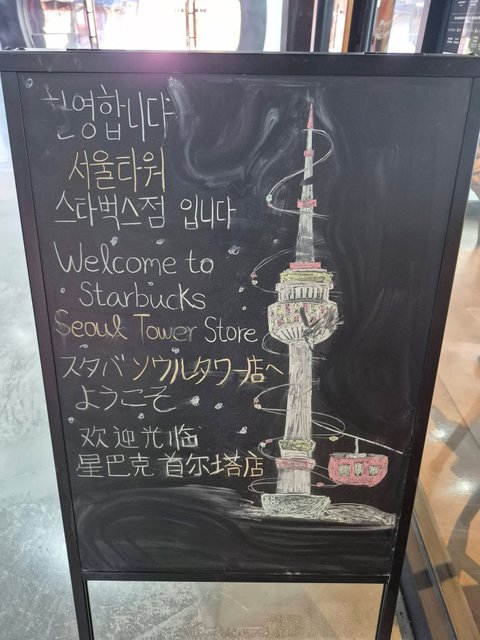 환영합니다
서울타워
스타벅스점 입니다
Welcome to
Starbucks
Seoul Tower Store
スタバ ソウルタワー店へ
ようこそ
欢迎光临
星巴克 首尔塔店